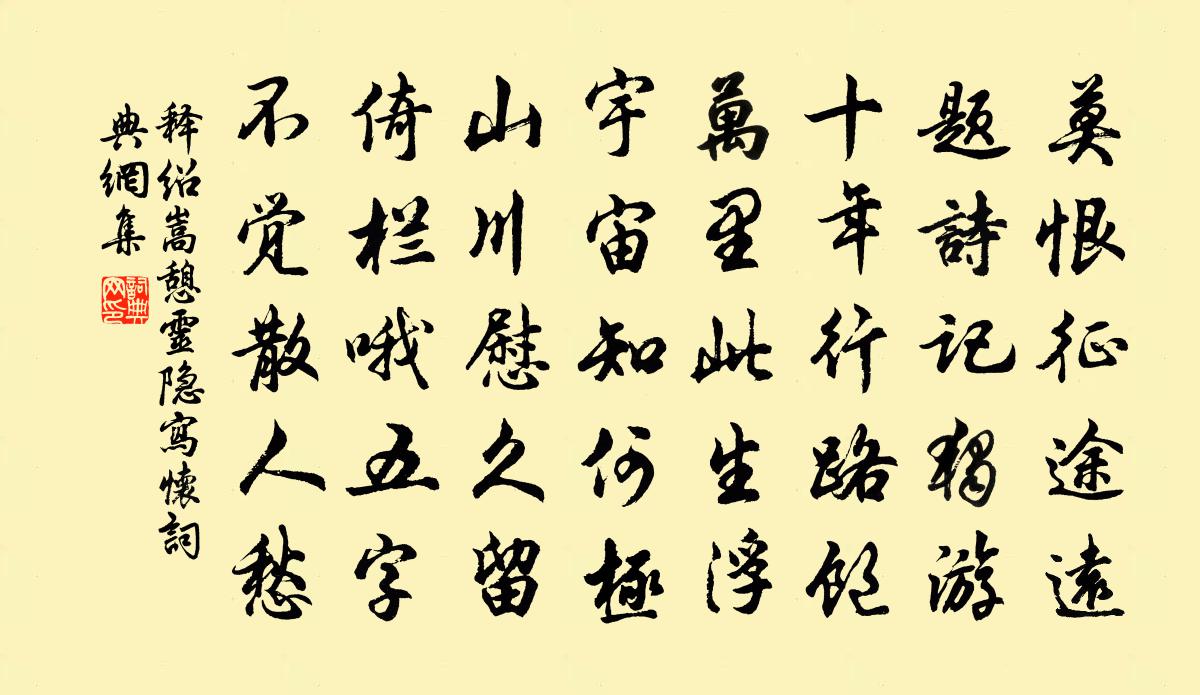 莫恨征途遠
题詩记獨游
十年行路飽
萬里此生浮
宇宙知何極
山川慰久留
倚栏哦五字
不觉散人愁
释绍嵩憩靈隐寫懷詞
典網集
詞典
网印